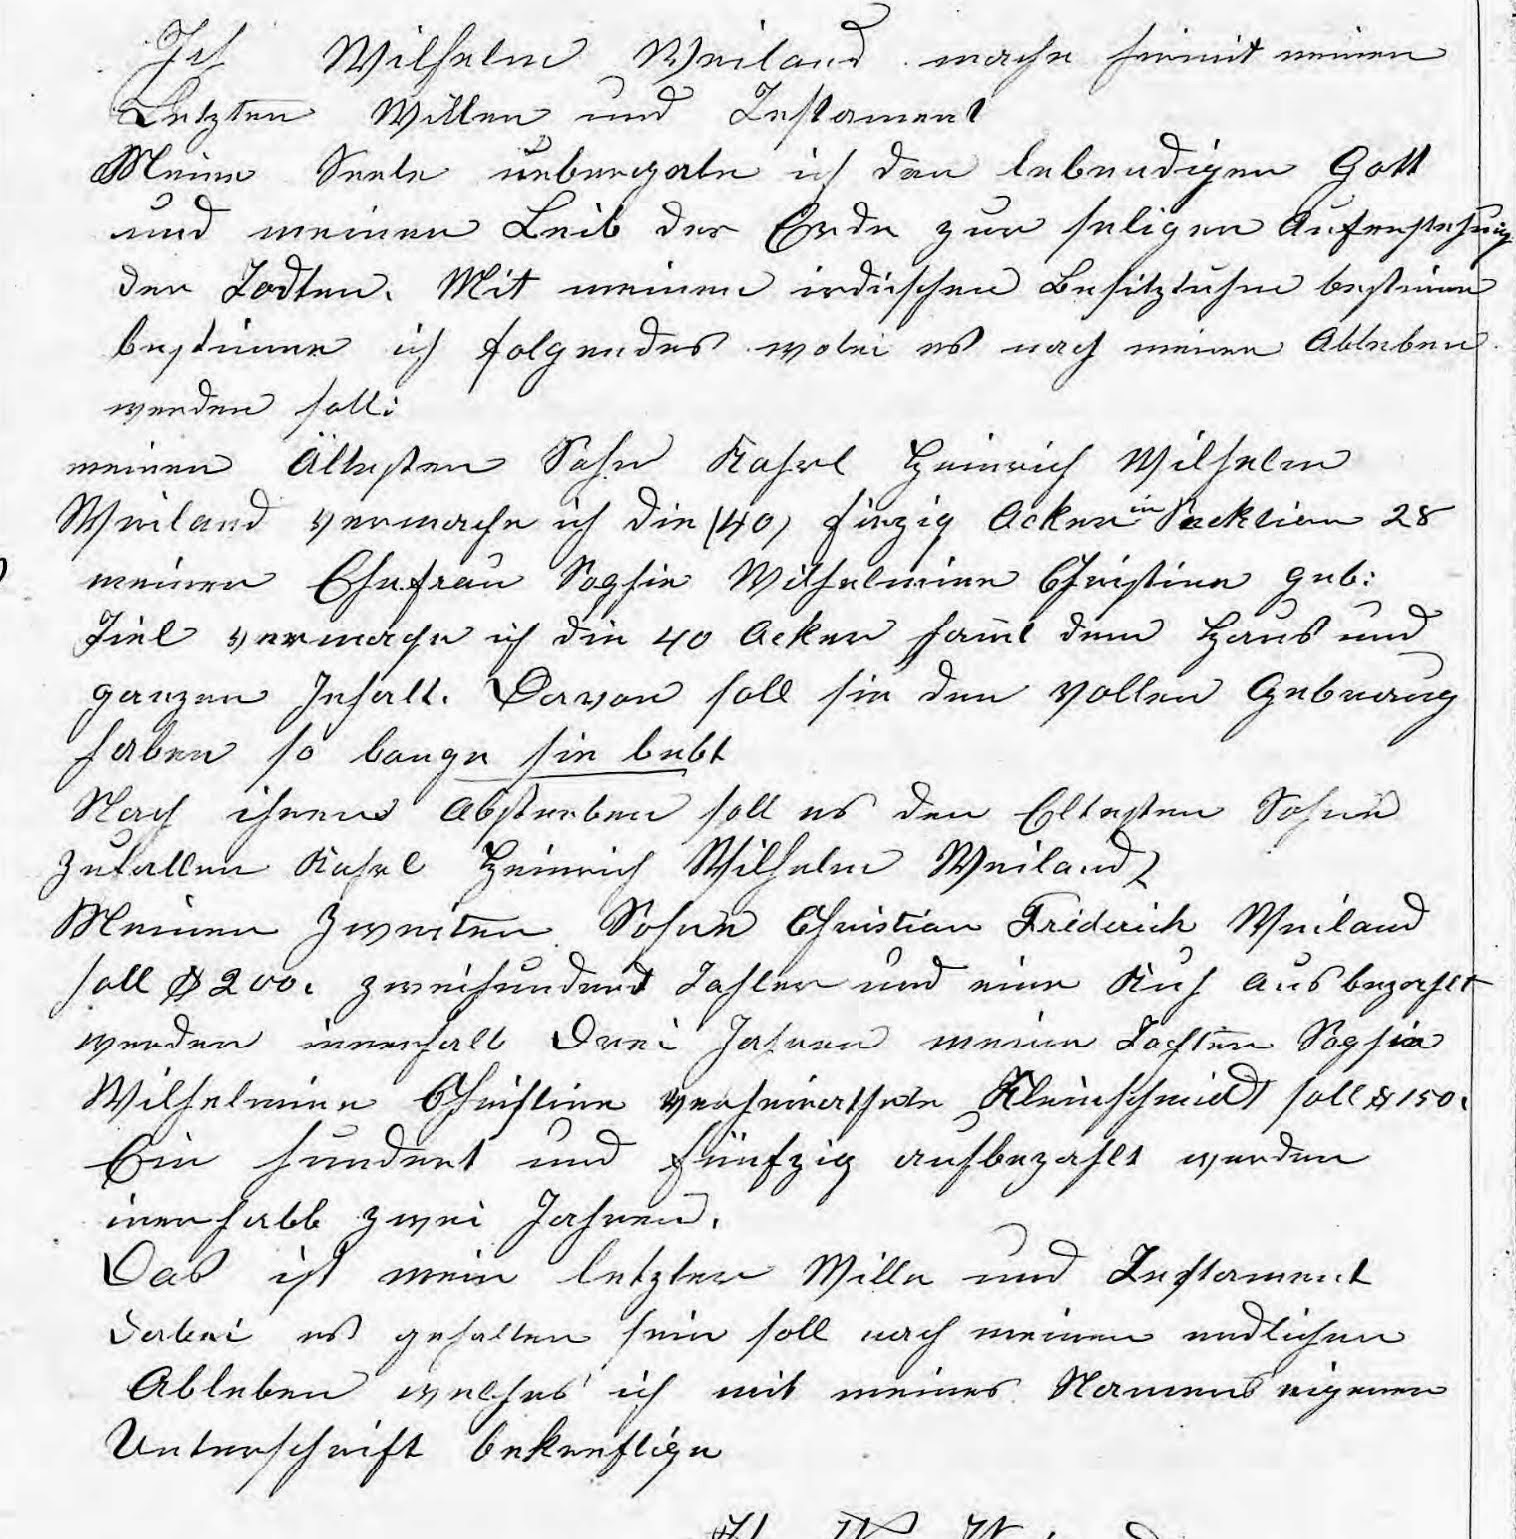 Ich Wilhelm Weiland mache hiermit meinen
Letzten Willen und Testament
Meine Seele uebergebe ich den lebendigen Gott
und meinen Leib der Erde zur seligen Auferstehung
der Todten. Mit meinen irdischen bestimme
bestimme ich folgendes wobei es nach meinen Ableben
werden soll:
meinen Ältesten Sohn Kahrl Heinrich Wilhelm
Weiland vermache ich die (40) firzig Acker in Secktion 28
meiner Ehefrau Sophie Wilhelmine Christine geb:
vermache ich die 40 Acker samt dem Haus und
ganzen Inhalt. Davon soll sie den vollen Gebrauch
haben so lange sie lebt
Nach ihren Absterben soll es den Eltesten Sohne
zufallen Kahrl Heinrich Wilhelm Weiland
Meinen Zweiten Sohne Christian Friderich Weiland
soll $200. zweihundert Tahler und eine Kuh ausbezahlt
werden innerhalb Drei Jahren meine Tochter Sophia
Wilhelmine Christine verheirathete Kleinschmidt soll $150.
Ein hundert und fünfzig ausbezahlt werden
inerhalb zwei Jahren.
Das ist mein letzter Wille und Testament
Dabei es gehalten sein soll nach meinen endlichen
Ableben welches ich mit meines Namens eigenen
Unterschrift bekreftige